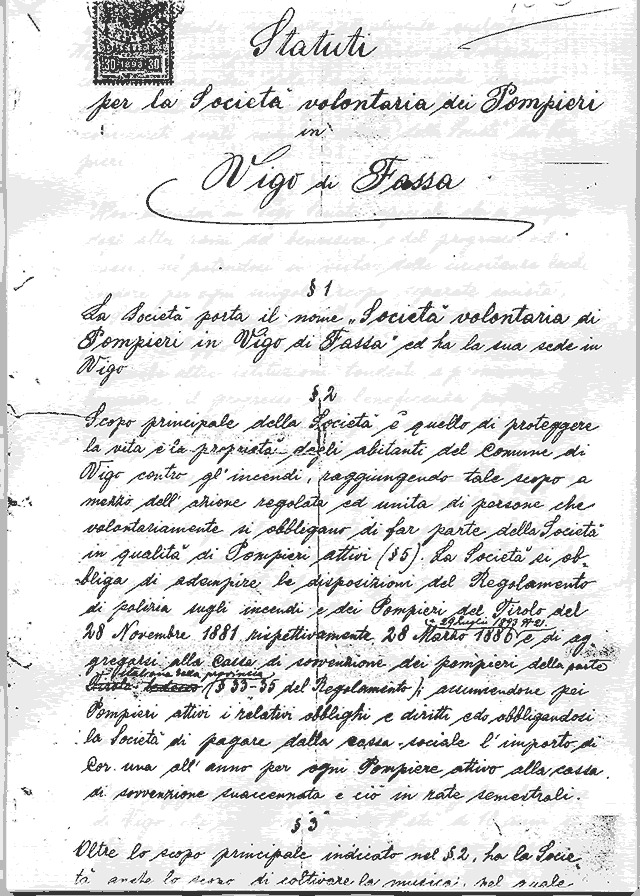 30 1898 30
Statuti
per la Società volontaria dei Pompieri
in
Vigo di Fassa
§ 1
La Società porta il nome „Società volontaria di
Pompieri in Vigo di Fassa" ed ha la sua sede in
Vigo
§ 2
Scopo principale della Società è quello di proteggere
la vita e la proprietà degli abitanti del comune di
Vigo contro gl'incendi, raggiungendo tale scopo a
mezzo dell'azione regolata ed unita di persone che
volontariamente si obbligano di far parte della Società
in qualità di Pompieri attivi (§ 5). La Società si ob-
bliga di adempire le disposizioni del Regolamento
di polizia sugli incendi e dei Pompieri del Tirolo del
28 Novembre 1881 rispettivamente 28 Marzo 1886 e di ag
gregarsi alla Cassa di sovvenzione dei pompieri della parte
italiana della provincia
(§ 33-35 del Regolamento); assumendone pei
Pompieri attivi i relativi obblighi e diritti ed obbligandosi
la Società di pagare dalla cassa sociale l'importo di
Cor. una all'anno per ogni Pompiere attivo alla cassa
di sovvenzione suaccennata e ciò in rate semestrali.
§ 3
Oltre lo scopo principale indicato nel §.2, ha la Socie
tà anche lo scopo di coltivare la musica, nel quale